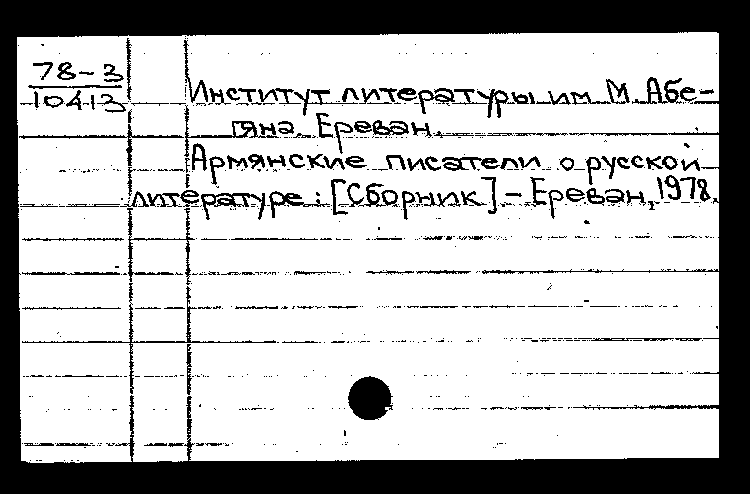 78-3
10413
Институт литературы им М. Абе-
гяна. Ереван.
Армянские писатели о русской
литературе : [Сборник] - Ереван, 1978.